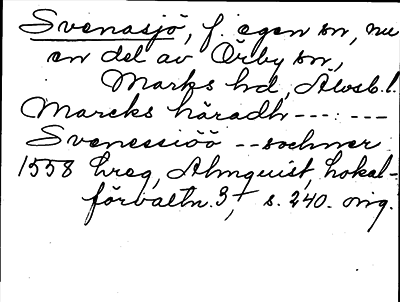 Svenasjö, f. egen sn, nu
en del av Örby sn,
Marks hd, Älvsb. l.
Mareks häradh --- : ---
Svenessiöö -- sochner
1558 hreg, Almquist, Lokal-
förvaltn. 3, s. 240. orig.